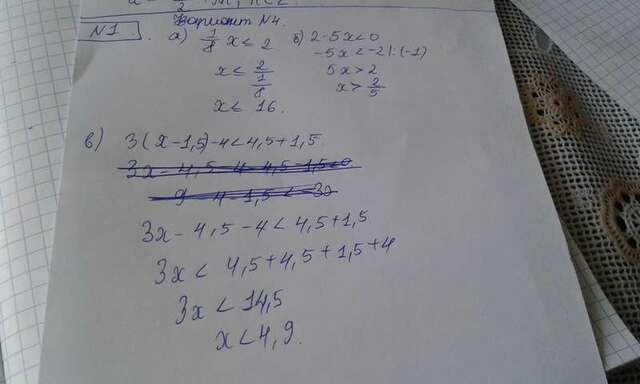 Вариант N4.
N1. а) 1/8 x ≤ 2 б) 2-5x<0
-5x<-2|:(-1)
x ≤ 2/(1/8) 5x>2
x ≤ 16. x> 2/5
в) 3(x-1,5)-4<4,5+1,5.
3x-4,5-4<4,5+1,5
3x < 4,5+4,5+1,5+4
3x < 14,5
x < 4,9.